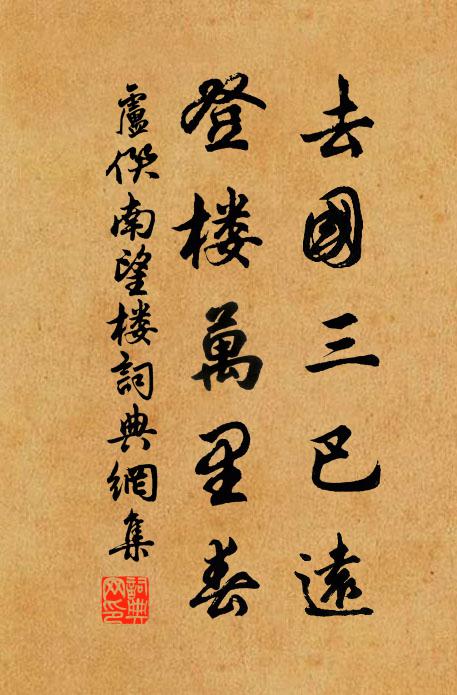 去國三巴遠
登楼萬里春
盧僎南望楼詞典網集
詞典网印